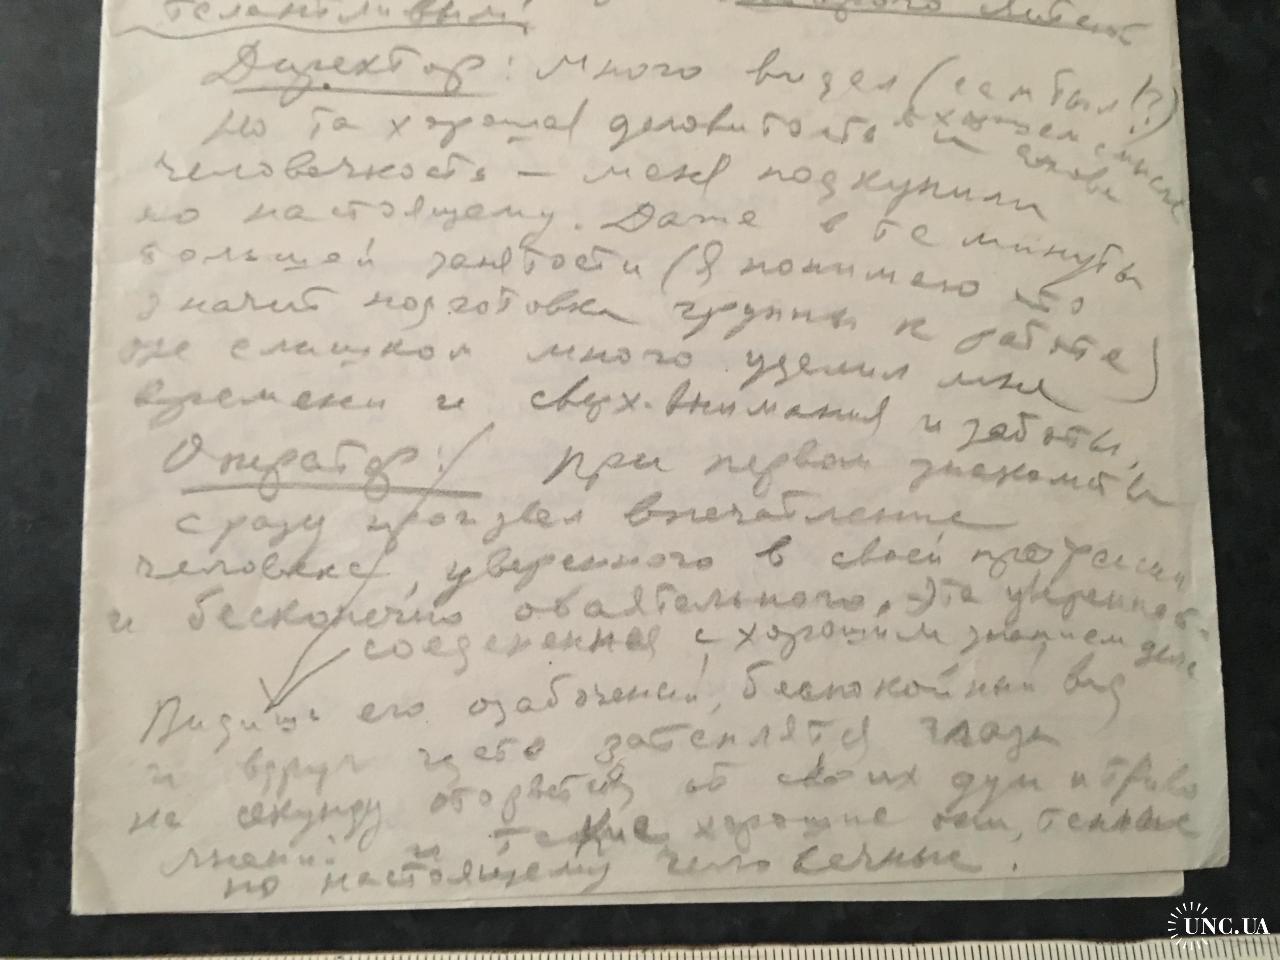 талантливый
Директор: много видел (сам был!?)
в хорошем смысле слова
но та хорошая деловитость и
человечность — меня подкупили
по настоящему. Даже в те минуты
большой занятости (я понимаю что
значит подготовка группы к работе)
он слишком много уделил мне
времени и сверх-внимания и заботы.
Оператор: При первом знакомстве
сразу произвел впечатление
человека, уверенного в своей профессии
и бесконечно обаятельного. Эта уверенность
соедененная с хорошим знанием дела
Видишь его озабоченный, беспокойный вид
и вдруг затеплятся глаза
на секунду оторвется от своих дум и
и такие хорошие они, теплые
по настоящему человечные.
UNC.UA